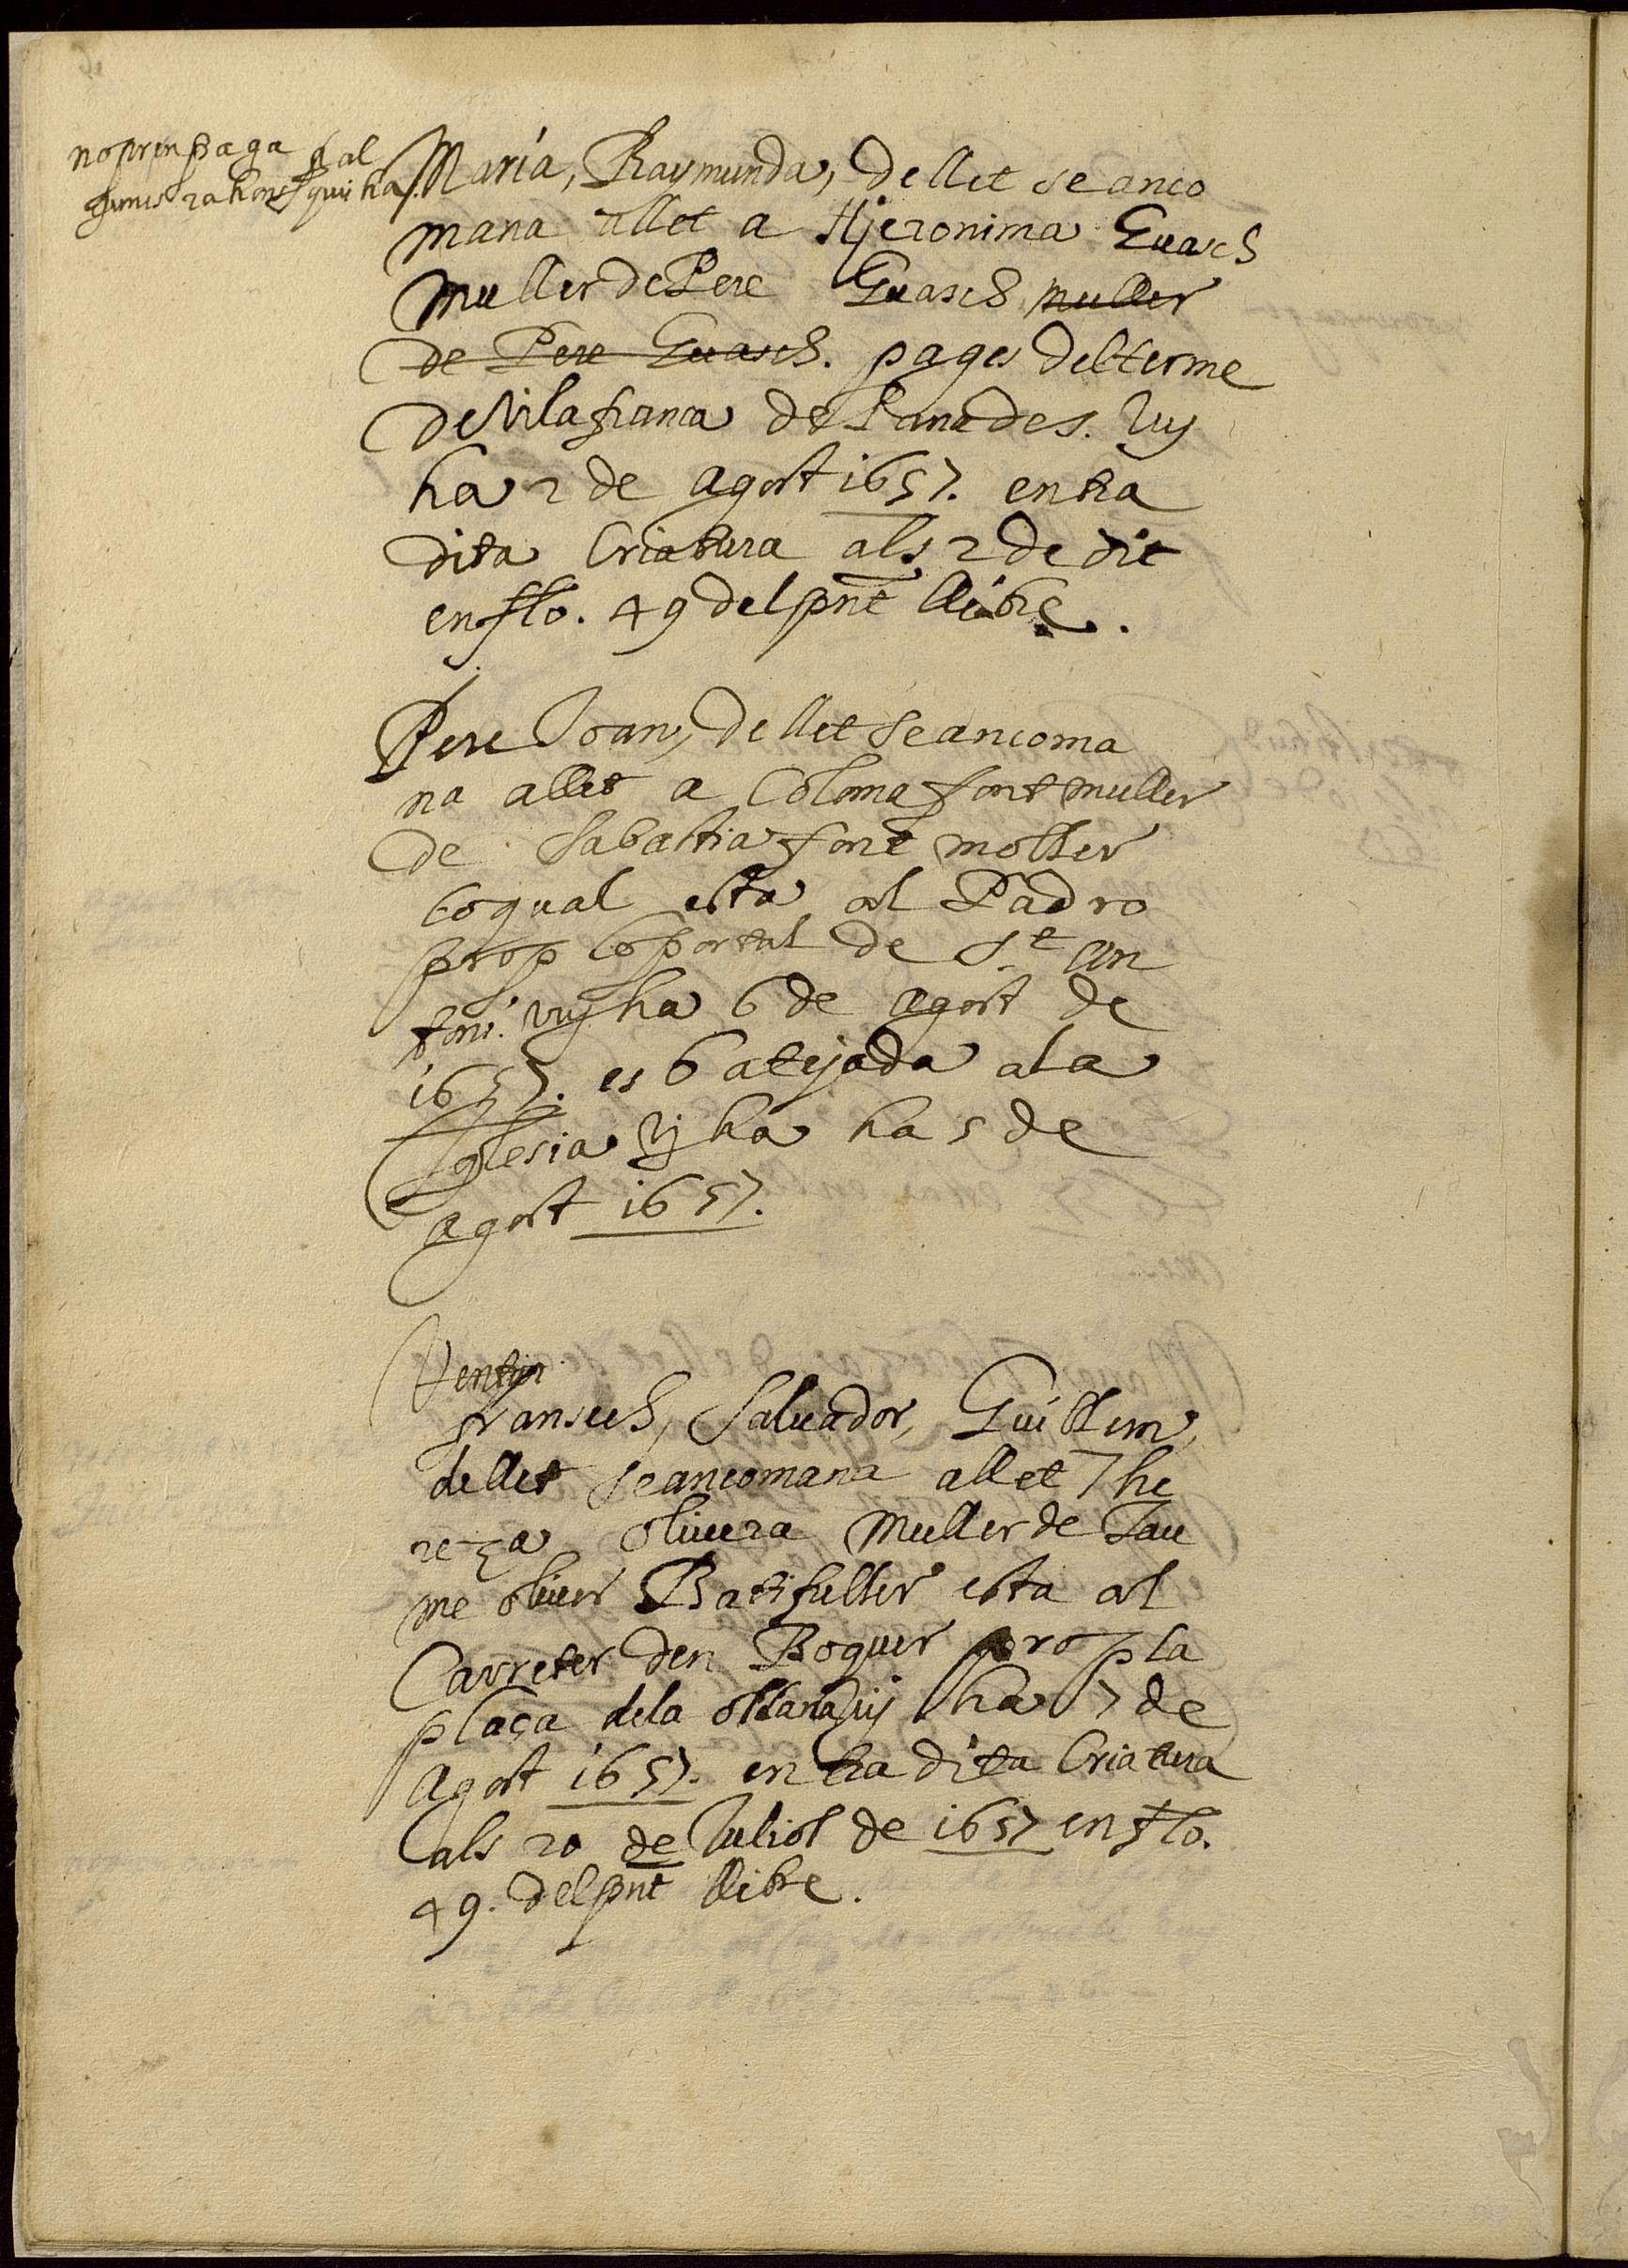 no prin paga p al
gunes rahons qui ha
Maria, Raymunda, de llet se anco
mana allet a Hjeronima Guasch
muller de Pere Guasch muller
de Pere Guasch. pages del terme
de Vilafranca de Panades. Vuy
ha 2 de agost 1657. entra
dita Criatura als 2 de dit
en flo. 49 del pnt llibre.
Pere Joan, de llet se ancoma
na allet a Coloma font muller
de Sabastia font moller
lo qual esta al Padro
prop lo portal de St. An
toni. vuy ha 6 de agost de
1657. es batejada a la
Iglesia vj ha ha 5 de
agost 1657.
fransech, Saluador, Guillem,
de llet se ancomana allet The
reza Oliuera muller de Jau
me oliuer Batifuller esta al
Carreter den Boquer prop la
plaça de la ollana vj ha 7 de
Agost 1657. entra dita Criatura
als 20 de Juliol de 1657 en flo.
49. del pnt llibre.